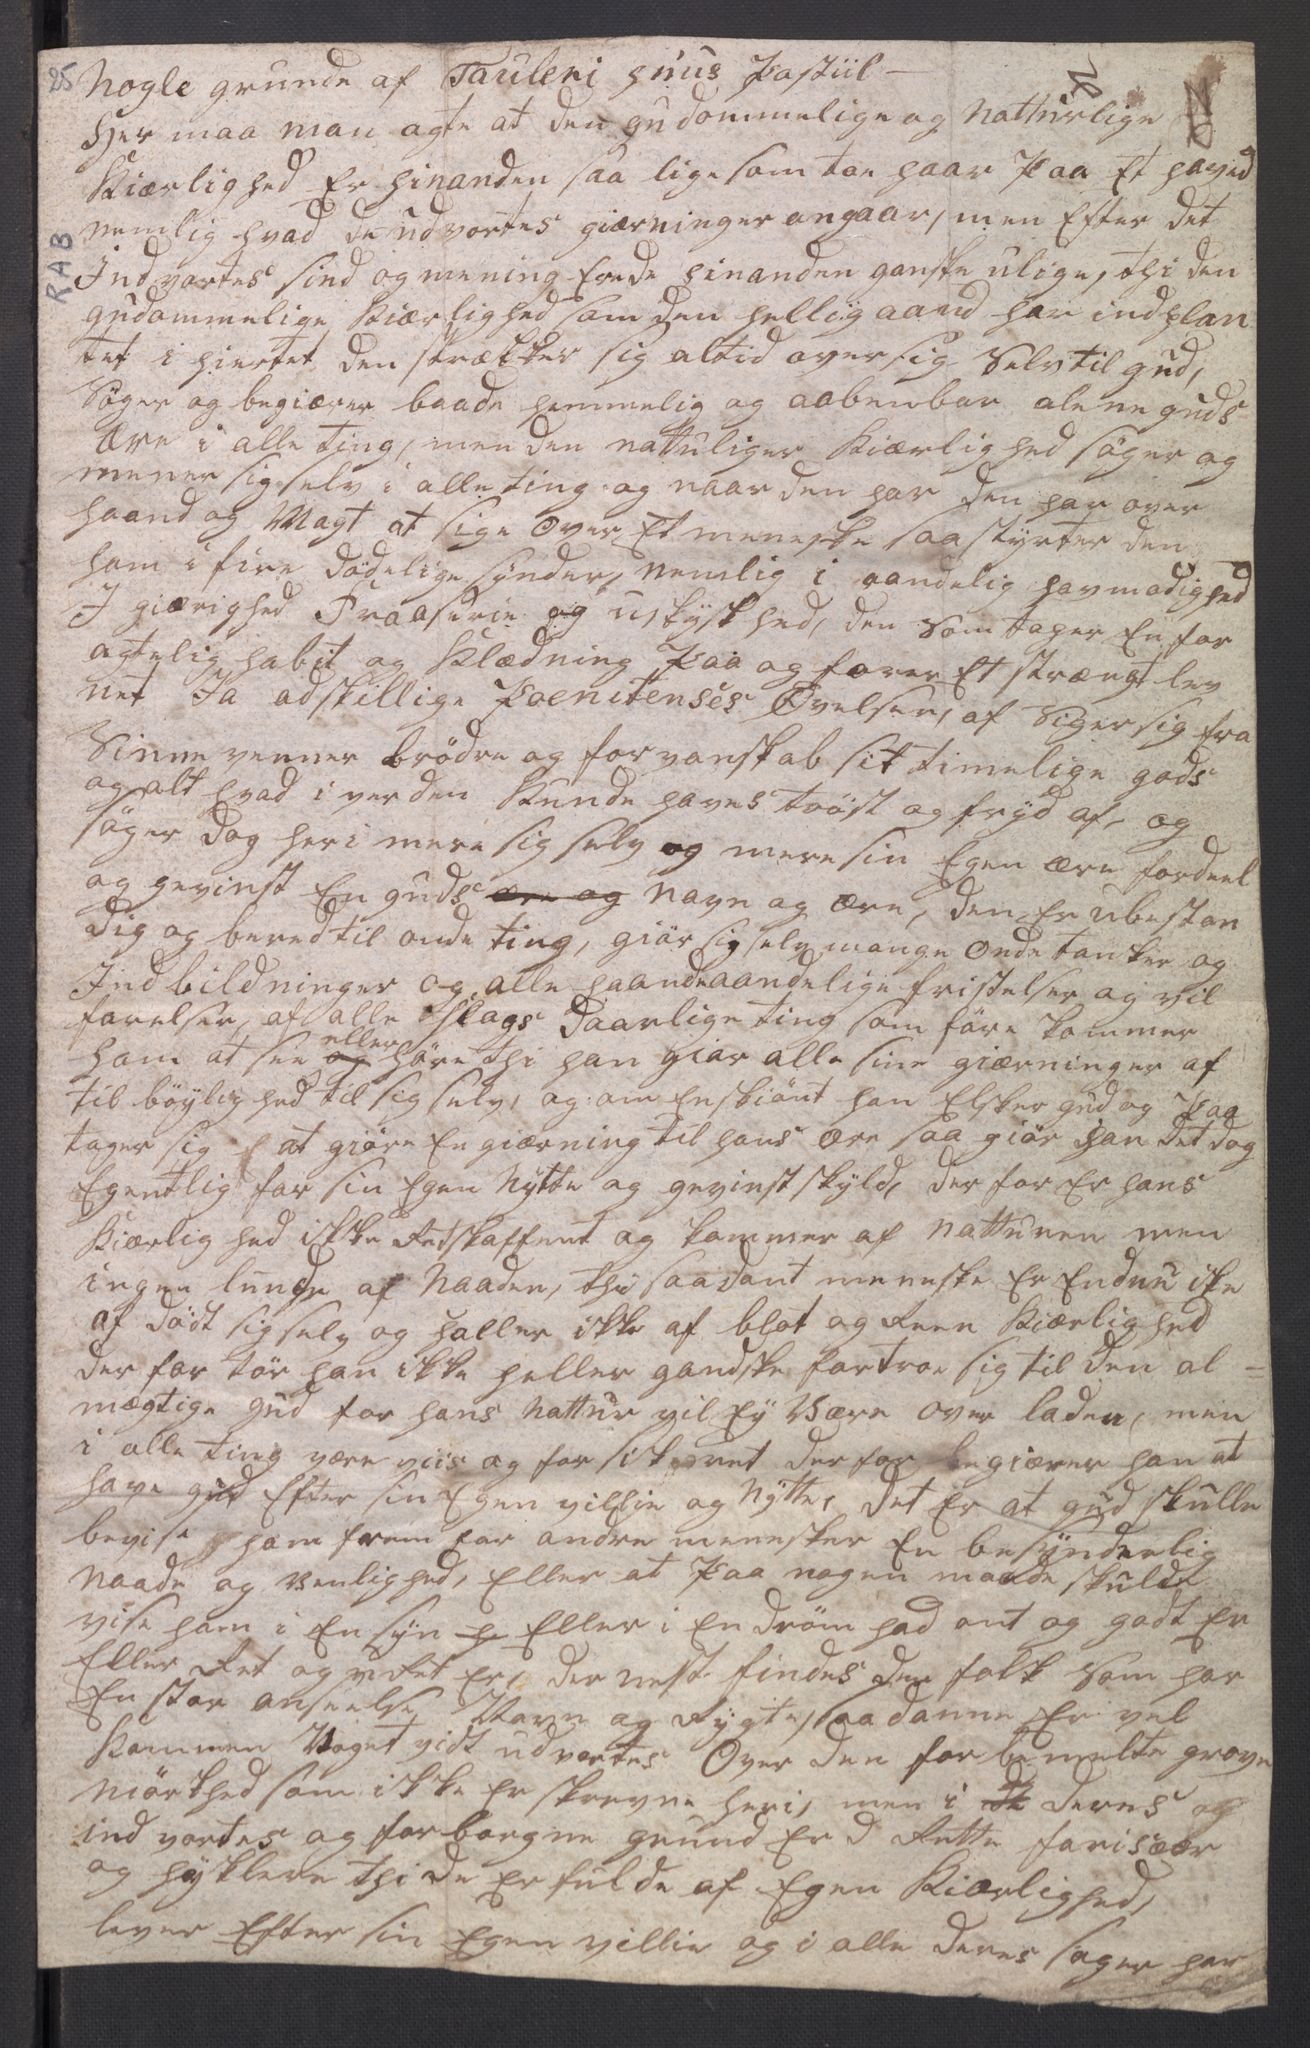 25 Nogle grunde af Tauleri Huus Postiil -
Her maa man agte at den gudommelige og Natturlige
Kiærlighed Er hinanden saa lige som toe haar Paa Et hoved
nemlig hvad de udvortes giærninger angaar, men Efter det
Indvortes sind og mening Erede hinanden ganske ulige, thi den
gudommelige Kiærlighed som den hellig aand har indplan
tet i hiertet den strækker sig altid over sig Selv til gud,
Söger og begiærer baade hemmelig og aabenbar alene guds
Ære i alle ting, men den natuliger Kiærlighed söger og
mener sig selv i alle ting og naar den har den har over
haand og Magt at sige Over Et menneske saa styrter den
ham i fire dödelige synder, nemlig i aandelig hovmodighed
I giærighed Fraaserie og ukyskhed, den som tager En for
agtelig habit og Klædning Paa og fører Et strængt lev
net Ja adskillige Poenitenses Övelser, af Siger sig fra
Sinne venner brödre og forvanskab sit timelige gods
og alt hvad i verden Kunde haves tröst og fryd af, og
söger dog heri mere sig selv og mere sin Egen ære fordeel
og gevinst En guds ære og Navn og ære, den Er ubestan
dig og bered til onde ting, giör sig selv mange Onde tanker og
Indbildninger og alle haande aandelige fristelser og vil
farelser, af alle slags Daarlige ting som före kommer
ham at see og eller höre thi han giör alle sine giærninger af
til böylighed til sig selv, og om Enskiönt han Elsker gud og Paa
tager sig at giöre En giærning til hans ære saa giör han det dog
Egentlig for sin Egen Nytte og gevinst skyld, derfor Er hans
Kiærlighed ikke Retskaffent og kommer af Natturen men
ingen lunde af Naaden, thi saadant menneske Er Endnu ike
af dödt sig selv og haller ikke af blot og Reen Kiærlighed
der for tör han ikke heller gandske fortroe sig til den al=
mægtige gud for hans Nattur vil Ey Være over laden, men
i alle ting være viis og forsikeret der for begiærer han at
have gud Efter sin Egen villie og Nytte, det Er at gud skulle
bevise ham frem for andre mennesker En besynderlig
Naade og Venlighed, Eller at Paa nogen maade skulde
vise ham i En syn Eller i En dröm had ont og godt Er
Eller Ret og uRet Er, der nest findes der folk som har
En stor anseelse Navn og Rygte, saadanne Er vel
Kommen Noget vidt udvortes Over den forbemelte grove
Mörkhed som ikke Er skrevne heri, men i de deres og
indvortes og forborgne grund Er d Rette farisæer
og hyklere thi de Er fulde af Egen Kiærlighed,
lever Efter sin Egen villie og i alle deres sager har
RAB